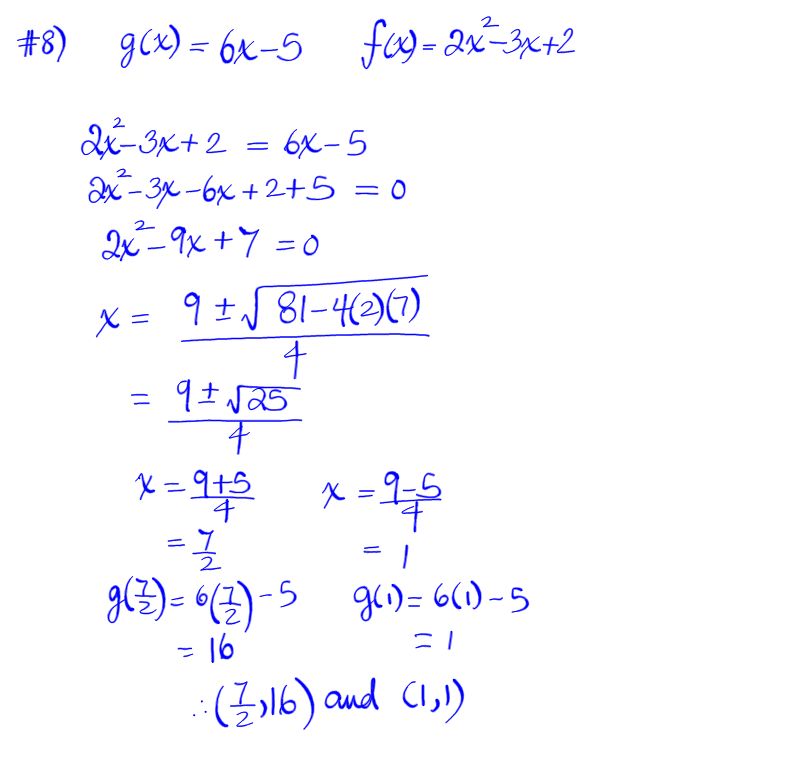 #8) g(x) = 6x-5 f(x) = 2x²-3x+2
2x²-3x+2 = 6x-5
2x²-3x-6x+2+5 = 0
2x²-9x+7 = 0
x = (9 ± √(81-4(2)(7)))/4
= (9 ± √25)/4
x = (9+5)/4 x = (9-5)/4
= 7/2 = 1
g(7/2) = 6(7/2)-5 g(1) = 6(1)-5
= 16 = 1
∴ (7/2, 16) and (1,1)